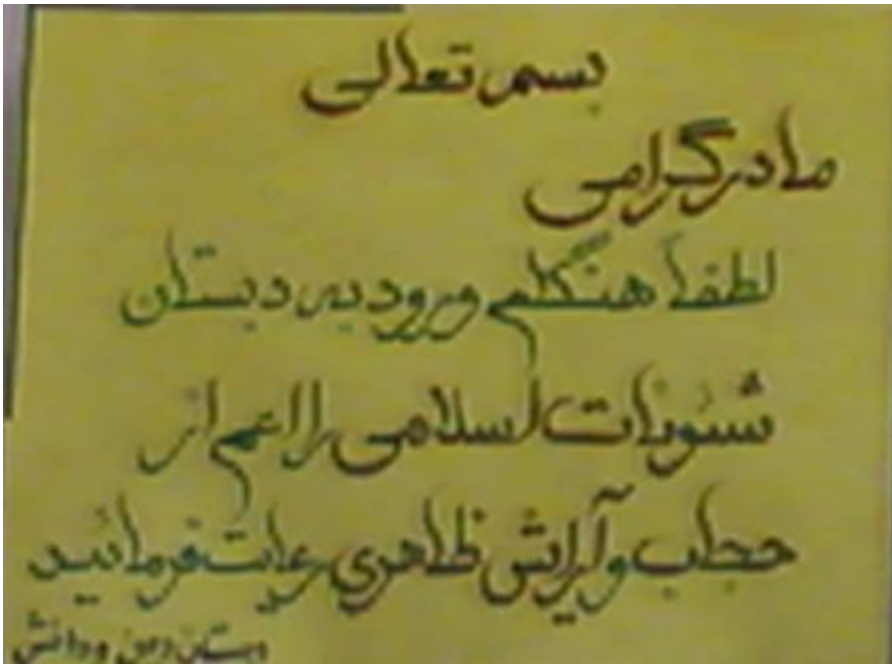 بسمه تعالی
مادر گرامی
لطفاً هنگام ورود به دبستان
شئونات اسلامی را اعم از
حجاب و آرایش ظاهری رعایت فرمائید
دبستان دین و دانش